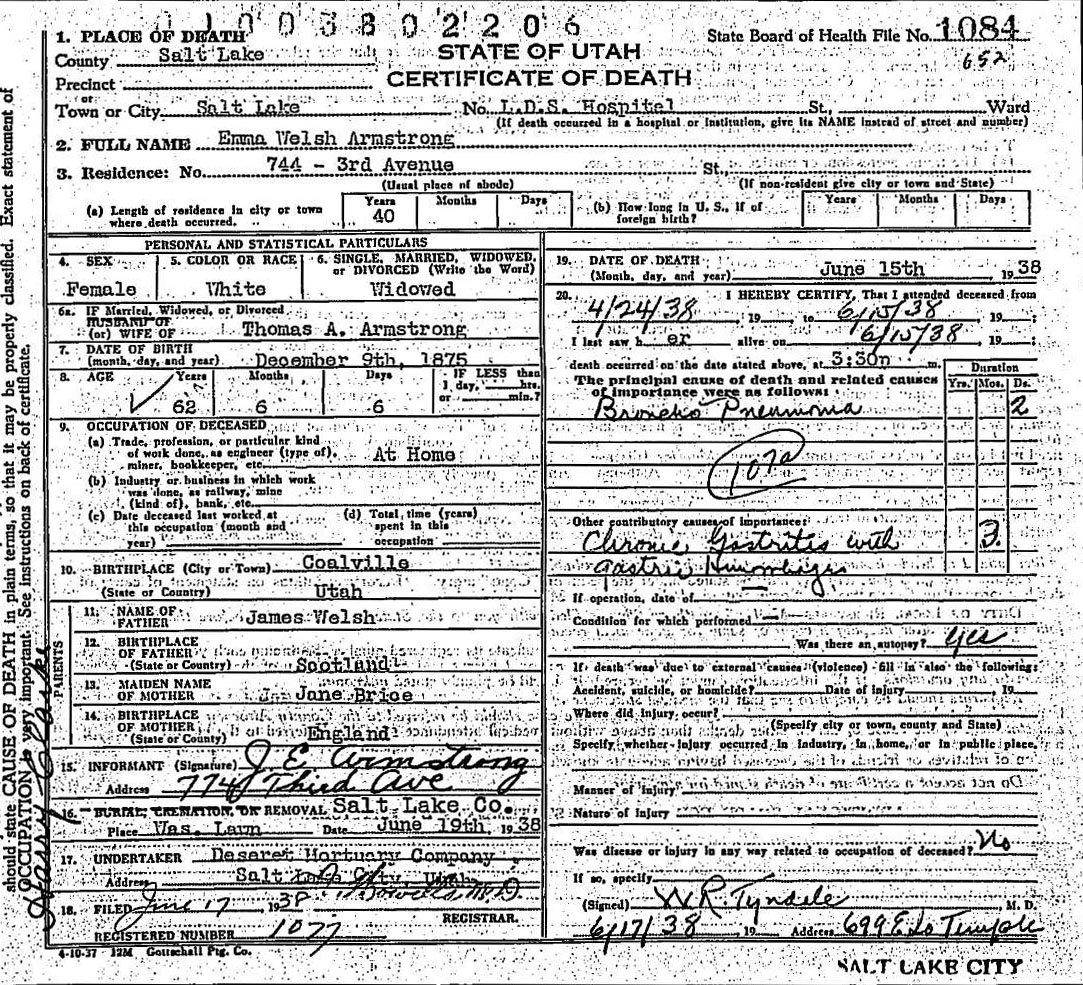 0 1 0 0 3 8 0 2 2 0 6
1. PLACE OF DEATH
State Board of Health File No. 1084
652
County Salt Lake
STATE OF UTAH
CERTIFICATE OF DEATH
Precinct
or
Town or City Salt Lake No. L.D.S. Hospital St., Ward
(If death occurred in a hospital or institution, give its NAME instead of street and number)
2. FULL NAME Emma Welsh Armstrong
3. Residence: No. 744 - 3rd Avenue St.,
(Usual place of abode) (If non-resident give city or town and State)
(a) Length of residence in city or town where death occurred. Years 40 Months Days
(b) How long in U. S., if of foreign birth? Years Months Days
PERSONAL AND STATISTICAL PARTICULARS
4. SEX Female
5. COLOR OR RACE White
6. SINGLE, MARRIED, WIDOWED, or DIVORCED (Write the Word) Widowed
6a. IF Married, Widowed, or Divorced
HUSBAND OF
(or) WIFE OF Thomas A. Armstrong
7. DATE OF BIRTH
(month, day, and year) December 9th, 1875
8. AGE Years 62 Months 6 Days 6
IF LESS than
1 day, hrs.
or min.?
9. OCCUPATION OF DECEASED
(a) Trade, profession, or particular kind
of work done, as engineer (type of),
miner, bookkeeper, etc. At Home
(b) Industry or business in which work
was done, as railway, mine
(kind of), bank, etc.
(c) Date deceased last worked at
this occupation (month and
year)
(d) Total, time (years)
spent in this
occupation
10. BIRTHPLACE (City or Town) Coalville
(State or Country) Utah
PARENTS
11. NAME OF
FATHER James Welsh
12. BIRTHPLACE
OF FATHER
(State or Country) Scotland
13. MAIDEN NAME
OF MOTHER Jane Brice
14. BIRTHPLACE
OF MOTHER
(State or Country) England
15. INFORMANT (Signature) J. E. Armstrong
Address 774 Third Ave
16. BURIAL, CREMATION, OR REMOVAL Salt Lake Co.
Place Was. Lawn Date June 19th 1938
17. UNDERTAKER Deseret Mortuary Company
Address Salt Lake City, Utah
18. FILED June 17 1938 M.D.
REGISTRAR.
REGISTERED NUMBER 1077
4-10-37 12M Gottschall Ptg. Co.
19. DATE OF DEATH
(Month, day, and year) June 15th, 1938
20. I HEREBY CERTIFY, That I attended deceased from
4/24/38, 19 to 6/15/38, 19 :
I last saw her alive on 6/15/38, 19 :
death occurred on the date stated above, at 3:30p m.
The principal cause of death and related causes
of importance were as follows:
Duration
Yrs. Mos. Ds.
Broncho Pneumonia 2
107a
Other contributory causes of importance:
Chronic Gastritis with 3
Gastric
If operation, date of
Condition for which performed
Was there an autopsy? yes
If death was due to external causes (violence) fill in also the following:
Accident, suicide, or homicide? Date of injury , 19
Where did injury occur?
(Specify city or town, county and State)
Specify whether injury occurred in industry, in home, or in public place,
Manner of injury
Nature of injury
Was disease or injury in any way related to occupation of deceased? No
If so, specify
(Signed) W R Tyndale M. D.
6/17/38, 19 Address 699 E So Temple
SALT LAKE CITY
should state CAUSE OF DEATH in plain terms, so that it may be properly classified. Exact statement of
OCCUPATION is very important. See instructions on back of certificate.
Harry Clarke